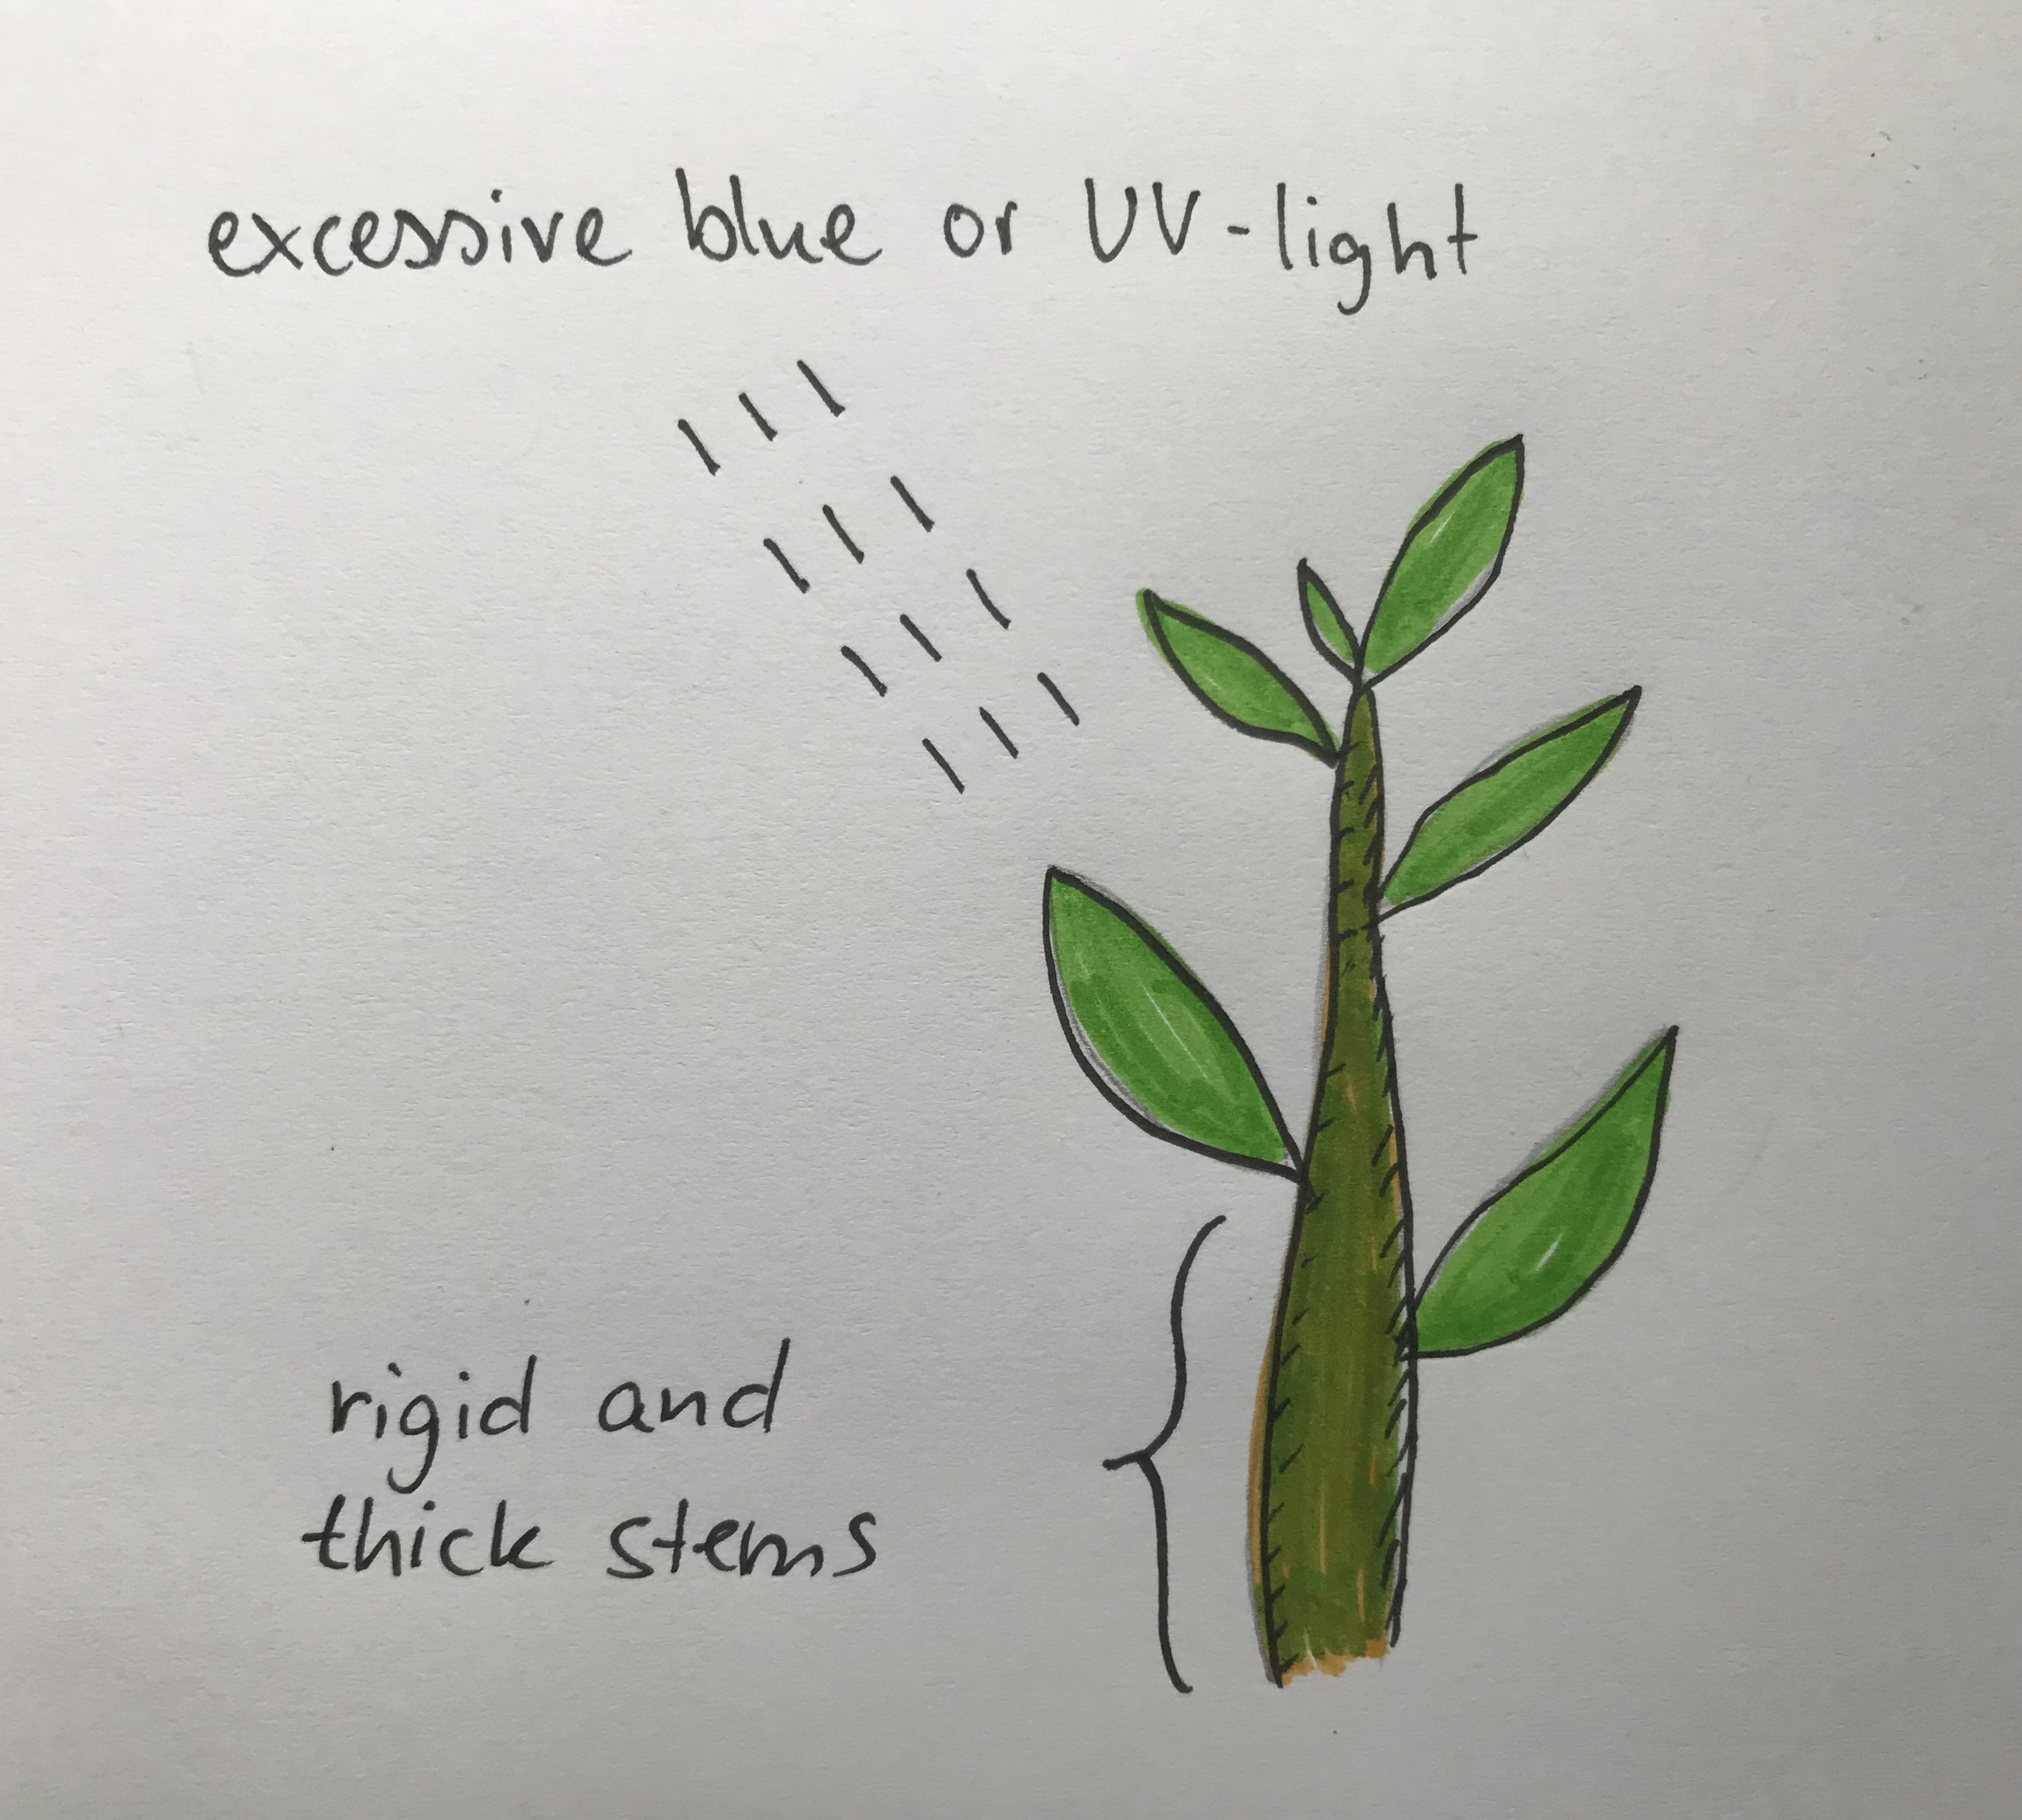 excessive blue or UV-light
rigid and
thick stems